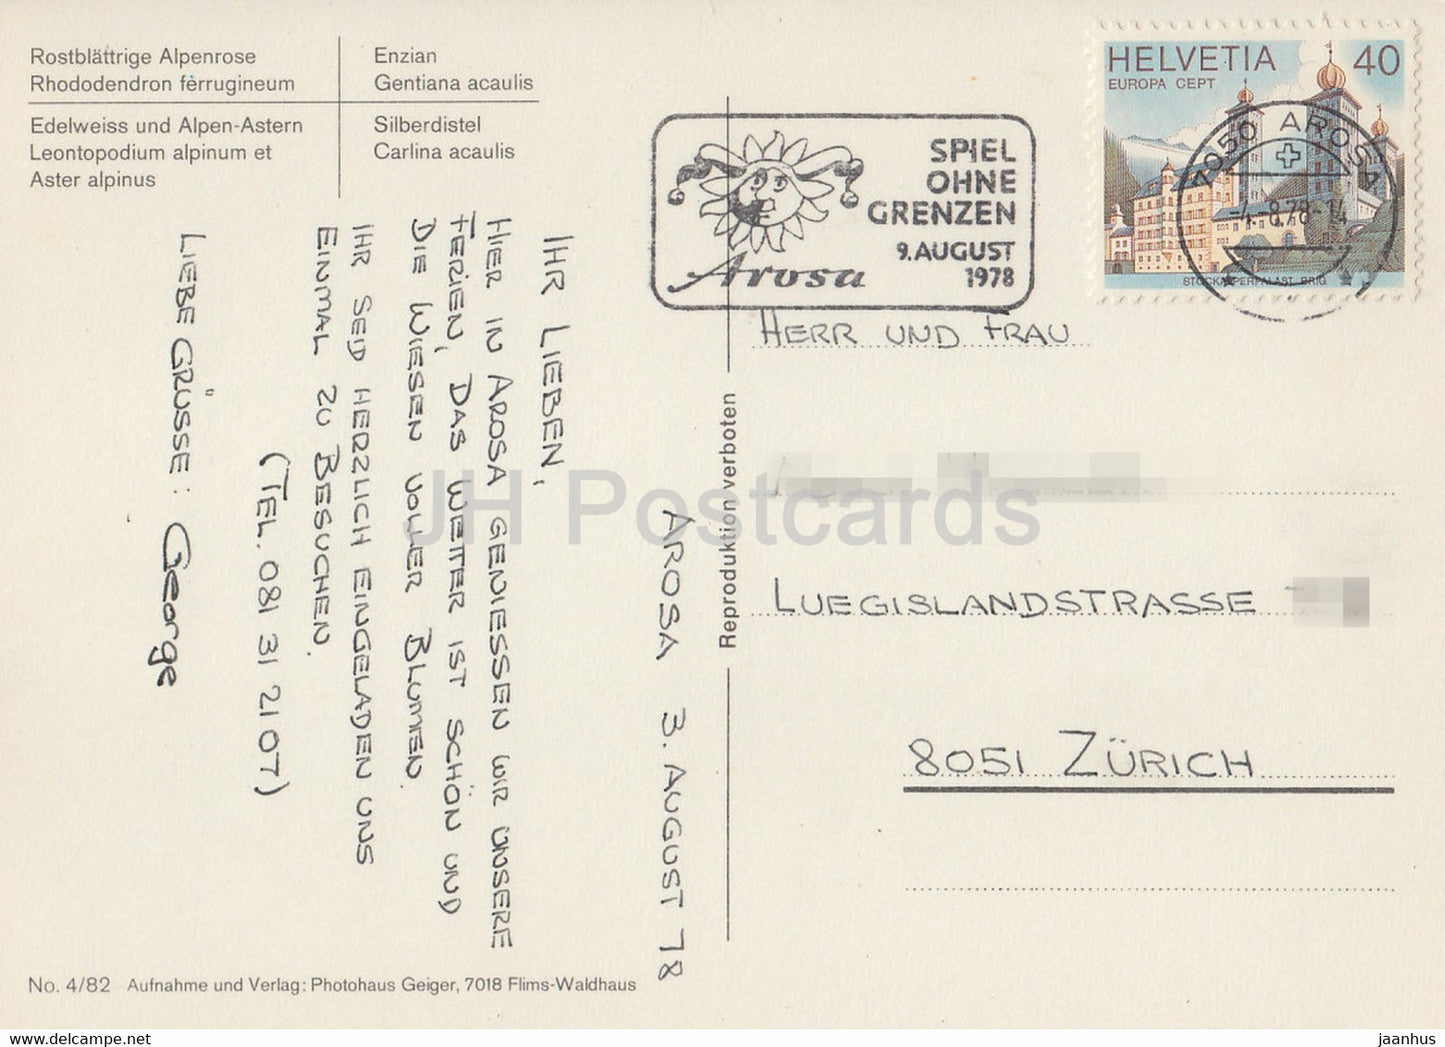 Rostblättrige Alpenrose
Rhododendron fèrrugineum
Enzian
Gentiana acaulis
Edelweiss und Alpen-Astern
Leontopodium alpinum et
Aster alpinus
Silberdistel
Carlina acaulis
SPIEL
OHNE
GRENZEN
9. AUGUST
1978
Arosa
HELVETIA 40
EUROPA CEPT
STOCKALPERPALAST BRIG
7050 AROSA
-4.-8.78-14
AROSA 3. AUGUST 78
IHR LIEBEN,
HIER IN AROSA GENIESSEN WIR UNSERE
FERIEN, DAS WETTER IST SCHÖN UND
DIE WIESEN VOLLER BLUMEN.
IHR SEID HERZLICH EINGELADEN UNS
EINMAL ZU BESUCHEN.
(TEL. 081 31 21 07)
LIEBE GRÜSSE: George
Reproduktion verboten
HERR UND FRAU
LUEGISLANDSTRASSE
8051 ZÜRICH
No. 4/82 Aufnahme und Verlag: Photohaus Geiger, 7018 Flims-Waldhaus
JH Postcards
www.delcampe.net
jaanhus